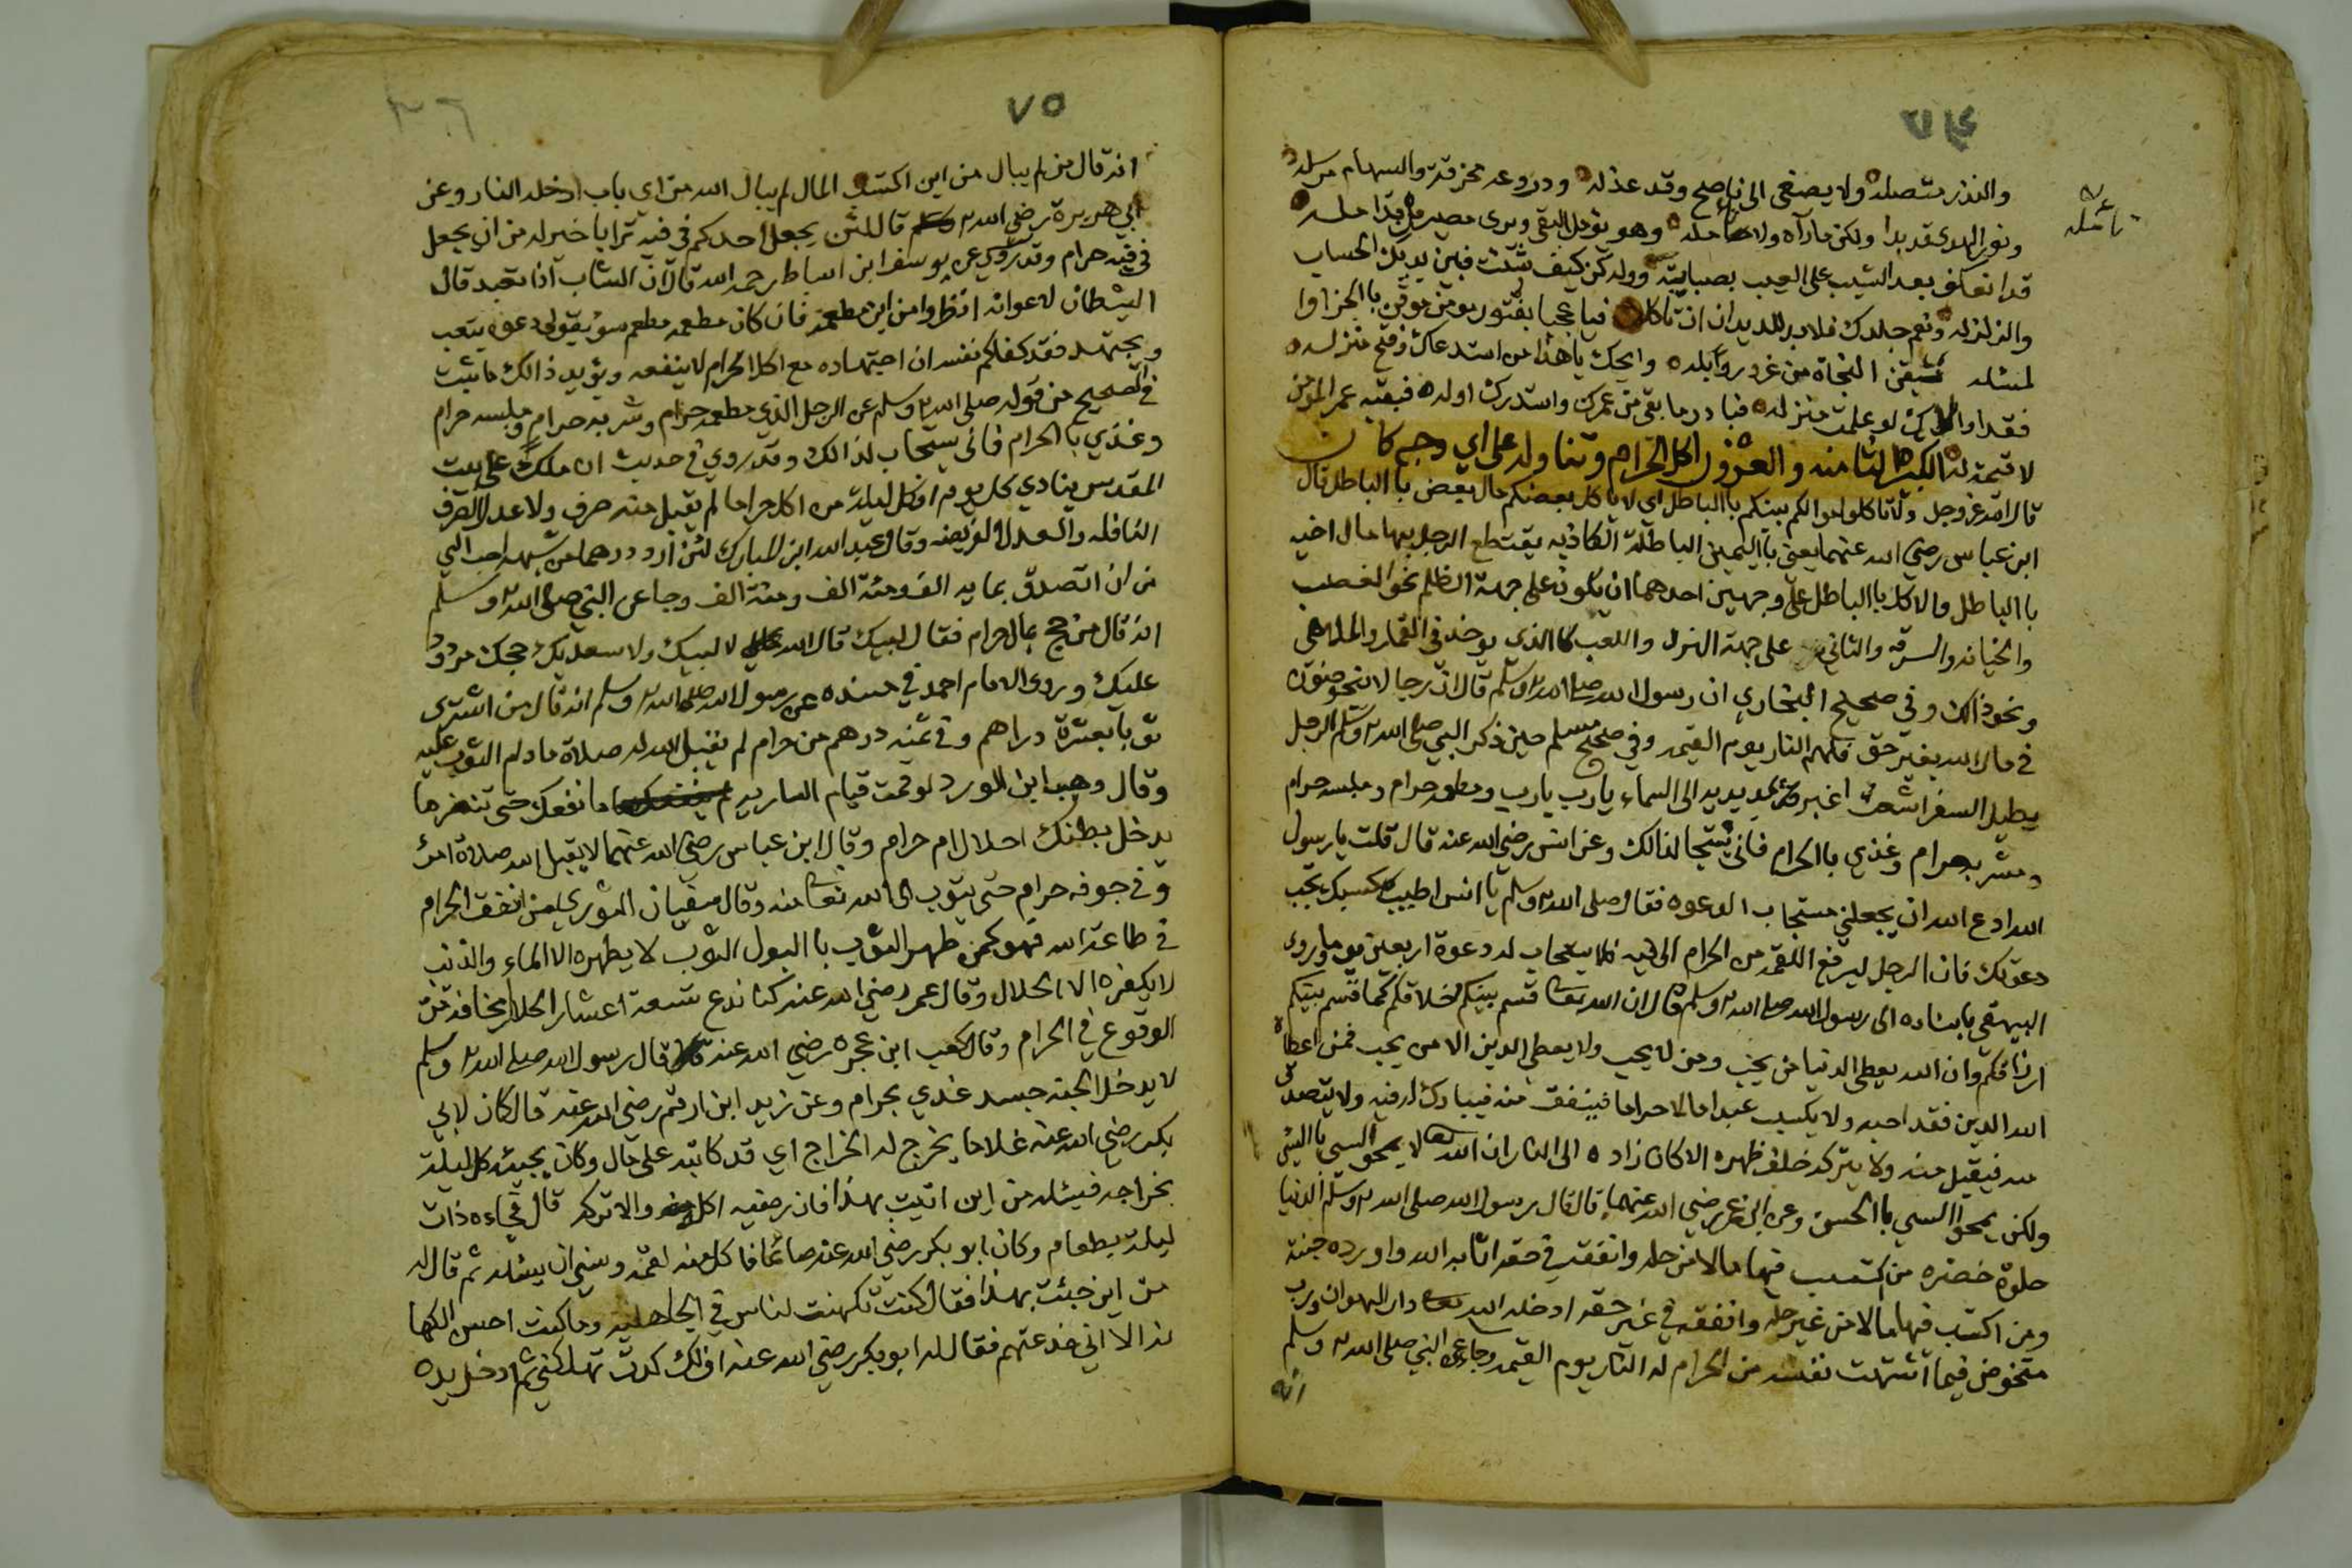 والنذر متصله ولا يصغى الى ناصح وقد عذله ودروعه مخرقة والسهام مرسله
ونور الهدى قد بدا ولكن ما رآه ولا تأمله وهو يؤمل البقى ويرى مصير من قد امله
تأمله
قد انعكف بعد الشيب على العيب بصبابته ووله كن كيف شئت فبين يديك الحساب
والزلزله ونعم جلدك فلابد للديدان ان تاكله فيا عجبا بفتور مومن موقن با الجزاوا
لمسئله استيقن النجاة من غرور وآبله وايحك ياهذا من استدعاك وفتح منزله
فقد اولاك لو علمت منزله فبادر ما بقى من عمرك واستدرك اوله فبقية عمر المومن
لا قيمة له الكبيرة الثامنه والعشرون اكل الحرام وتناوله على اي وجه كان
قال الله عز وجل ولا تاكلوا اموالكم بينكم با الباطل اي لا ياكل بعضكم مال بعض با الباطل قال
ابن عباس رضي الله عنهما يعني با اليمين الباطلة الكاذبه يقتطع الرجل بها مال اخيه
با الباطل والاكل با الباطل على وجهين احدهما ان يكون على جهة الظلم نحو الغصب
والخيانه والسرقه والثاني على جهة الهزل واللعب كا الذي يوخذ في القمار والملاهي
ونحو ذالك وفي صحيح البخاري ان رسول الله صلى الله وسلم قال ان رجالا يتخوضون
في مال الله بغير حق فلهم النار يوم القيمه وفي صحيح مسلم حين ذكر النبي صلى الله وسلم الرجل
يطيل السفر اشعث اغبر يمد يديه الى السماء يارب يارب ومطعمه حرام وملبسه حرام
ومشربه حرام وغذي با الحرام فانى يستجا لذالك وعن انس رضي الله عنه قال قلت يا رسول
الله ادع الله ان يجعلني مستجاب الدعوه فقال صلى الله وسلم يا انس اطيب كسبك تجب
دعوتك فان الرجل ليرفع اللقمة من الحرام الى فيه فلا يستجاب له دعوة اربعين يوما وروى
البيهقي باسناده الى رسول الله صلى الله وسلم قال ان الله تعا قسم بينكم اخلاقكم كما قسم بينكم
ارزاقكم وان الله يعطي الدنيا من يحب ومن لا يحب ولا يعطي الدين الا من يحب فمن اعطاه
الله الدين فقد احبه ولا يكسب عبد مالا حراما فينفق منه فيبارك له فيه ولا يتصدق
منه فيقبل منه ولا يتركه خلف ظهره الا كان زاده الى النار ان الله تعا لا يمحو السي با السي
ولكن يمحو السي با الحسن وعن ابن عمر رضي الله عنهما قال قال رسول الله صلى الله وسلم الدنيا
حلوة خضره من اكتسب فيها مالا من حله وانفقه في حقه اثابه الله واورده جنته
ومن اكتسب فيها مالا من غير حله وانفقه في غير حقه ادخله الله تعا دار الهوان ورب
متخوض فيما اشتهت نفسه من الحرام له النار يوم القيمه وجا عن النبي صلى الله وسلم
انه
٧٥
انه قال من لم يبال من اين اكتسب المال لم يبال الله من اي باب ادخله النار وعن
ابي هريرة رضي الله قال لئن يجعل احدكم في فيه ترابا خير له من ان يجعل
في فيه حرام وقد روي عن يوسف ابن اسباط رحمه الله قال ان الشاب اذا تعبد قال
الشيطان لاعوانه انظروا من اين مطعمه فان كان مطعمه مطعم سؤ يقول دعوه يتعب
ويجتهد فقد كفاكم نفسه ان اجتهاده مع اكل الحرام لا ينفعه ويؤيد ذالك ما ثبت
في الصحيح من قوله صلى الله وسلم عن الرجل الذي مطعمه حرام وشربه حرام وملبسه حرام
وغذي با الحرام فانى يستجاب لذالك وقد روي في حديث ان ملكا على بيت
المقدس ينادي كل يوم اوكل ليلة من اكل حراما لم يقبل منه صرف ولا عدل الصرف
النافله والعدل الفريضه وقال عبد الله ابن المبارك لئن ارد درهما من شبهه احب الي
من ان اتصدق بمايه الف ومئة الف ومئة الف وجا عن النبي صلى الله وسلم
انه قال من حج بمال حرام فقال لبيك قال الله لا لبيك ولا سعديك حجك مردود
عليك وروى الامام احمد في مسنده عن رسول الله صلى الله وسلم انه قال من اشترى
ثوبا بعشرة دراهم وفي ثمنه درهم من حرام لم يقبل الله له صلاة ما دام الثوب عليه
وقال وهيب ابن الورد لو قمت قيام الساريه ما نفعك حتى تنظر ما
يدخل بطنك احلال ام حرام وقال ابن عباس رضي الله عنهما لا يقبل الله صلاة امرئ
وفي جوفه حرام حتى يتوب الى الله تعا منه وقال سفيان الثوري من انفق الحرام
في طاعة الله فهو كمن طهر الثوب با البول الثوب لا يطهره الا الماء والذنب
لا يكفره الا الحلال وقال عمر رضي الله عنه كنا ندع تسعة اعشار الحلال مخافة من
الوقوع في الحرام وقال كعب ابن عجره رضي الله عنه قال رسول الله صلى الله وسلم
لا يدخل الجنه جسد غذي بحرام وعن زيد ابن ارقم رضي الله عنه قال كان لابي
بكر رضي الله عنه غلاما يخرج له الخراج اي قد كاتبه على مال وكان يجيئه كل ليلة
بخراجه فيسئله من اين اتيت بهذا فان رضيه اكل منه والا تركه قال فجاءه ذات
ليلة بطعام وكان ابو بكر رضي الله عنه صائما فاكل منه لقمة ونسي ان يسئله ثم قال له
من اين جئت بهذا فقال كنت تكهنت لناس في الجاهلية وما كنت احسن الكها
نه الا اني خدعتهم فقال له ابو بكر رضي الله عنه اف لك كدت تهلكني ثم ادخل يده